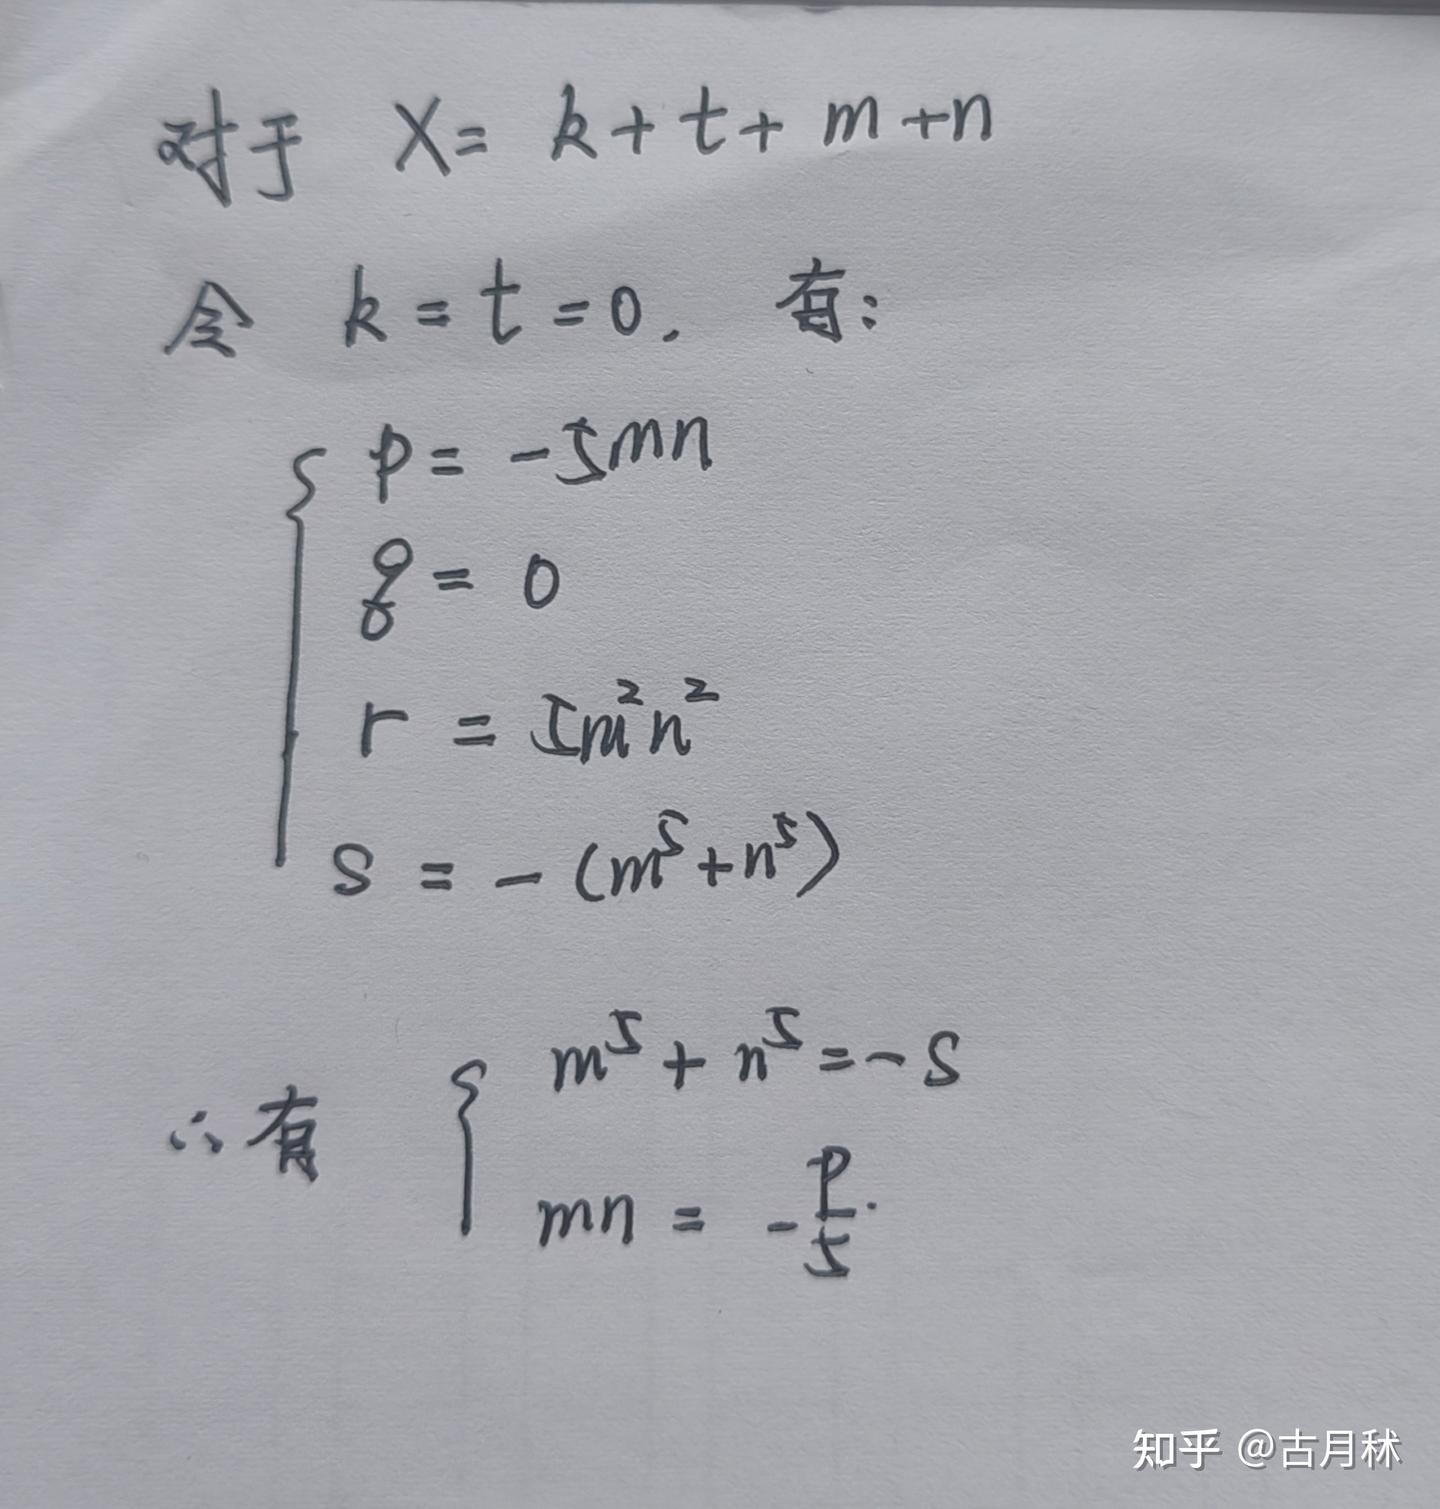 对于 X = k + t + m + n
令 k = t = 0. 有:
p = -5mn
q = 0
r = 5m²n²
s = -(m⁵+n⁵)
∴有 m⁵ + n⁵ = -s
mn = -p/5.
知乎 @古月秝